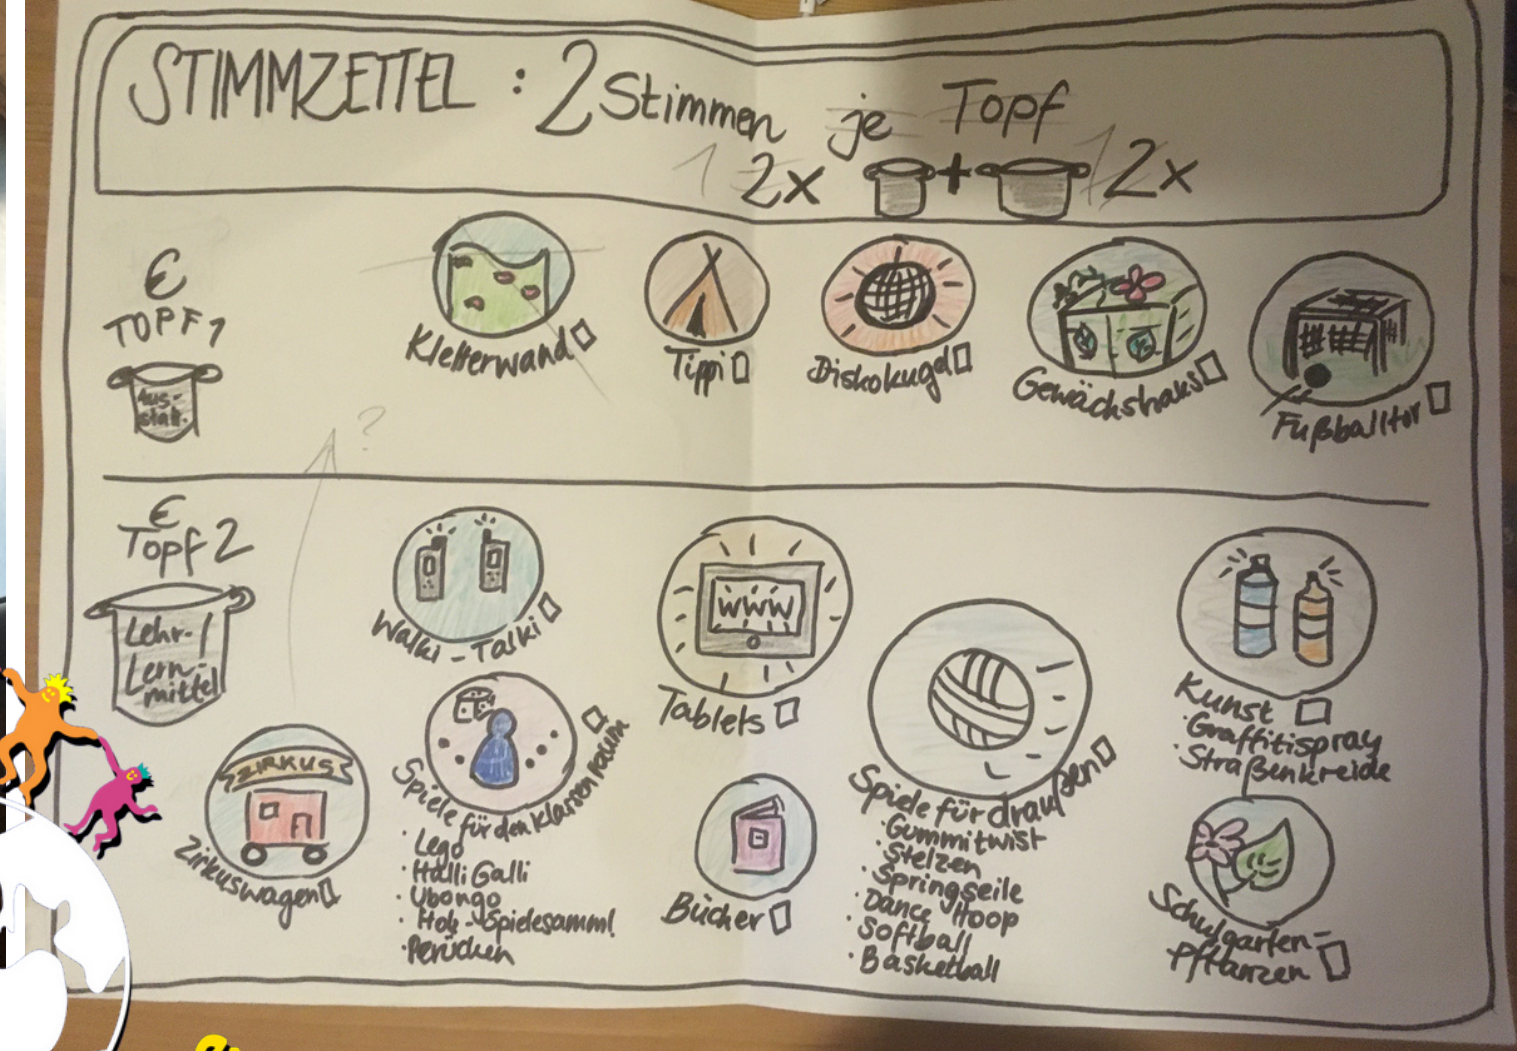 STIMMZETTEL : 2 Stimmen je Topf
1 2x + 1 2x
€
TOPF 1
Aus-
statt.
Kletterwand
Tippi
Diskokugel
Gewächshaus
Fußballtor
?
€
Topf 2
Lehr-/
Lern-
mittel
Walki-Talki
WWW
Tablets
Kunst
· Graffitispray
· Straßenkreide
ZIRKUS
Zirkuswagen
Spiele für den Klassenraum
· Lego
· Halli Galli
· Ubongo
· Holz-Spielesamml.
· Perücken
Bücher
Spiele für draußen
· Gummitwist
· Stelzen
· Springseile
· Dance Hoop
· Softball
· Basketball
Schulgarten-
pflanzen